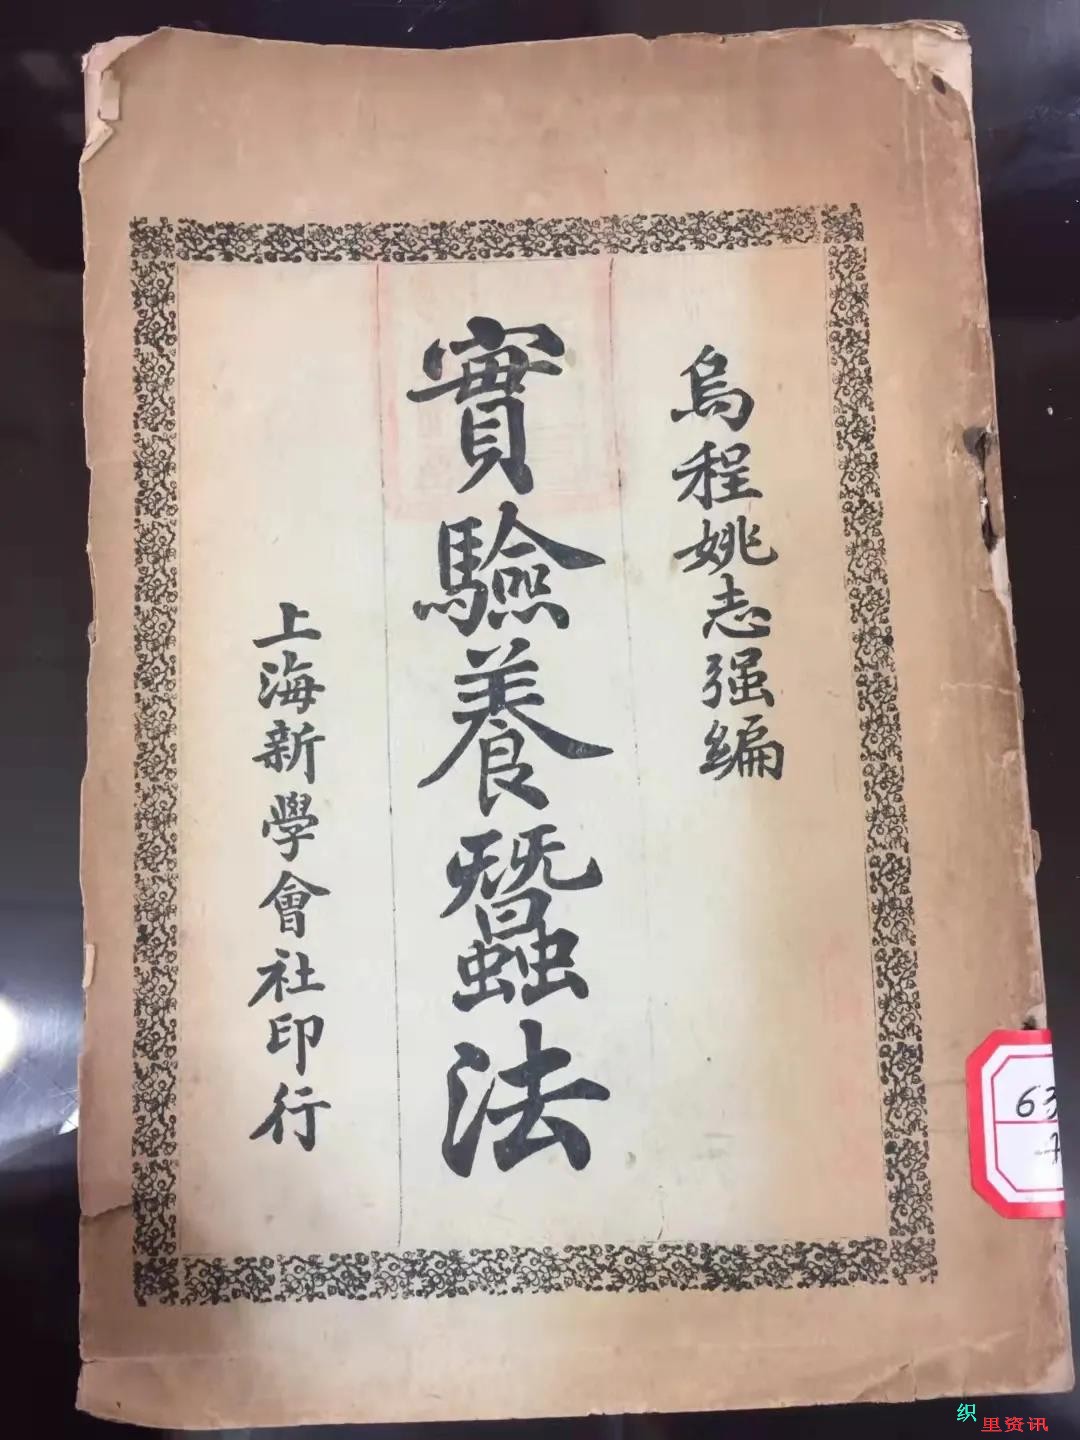 烏程姚志强編
實驗養蠶法
上海新學會社印行
63
织
里资讯